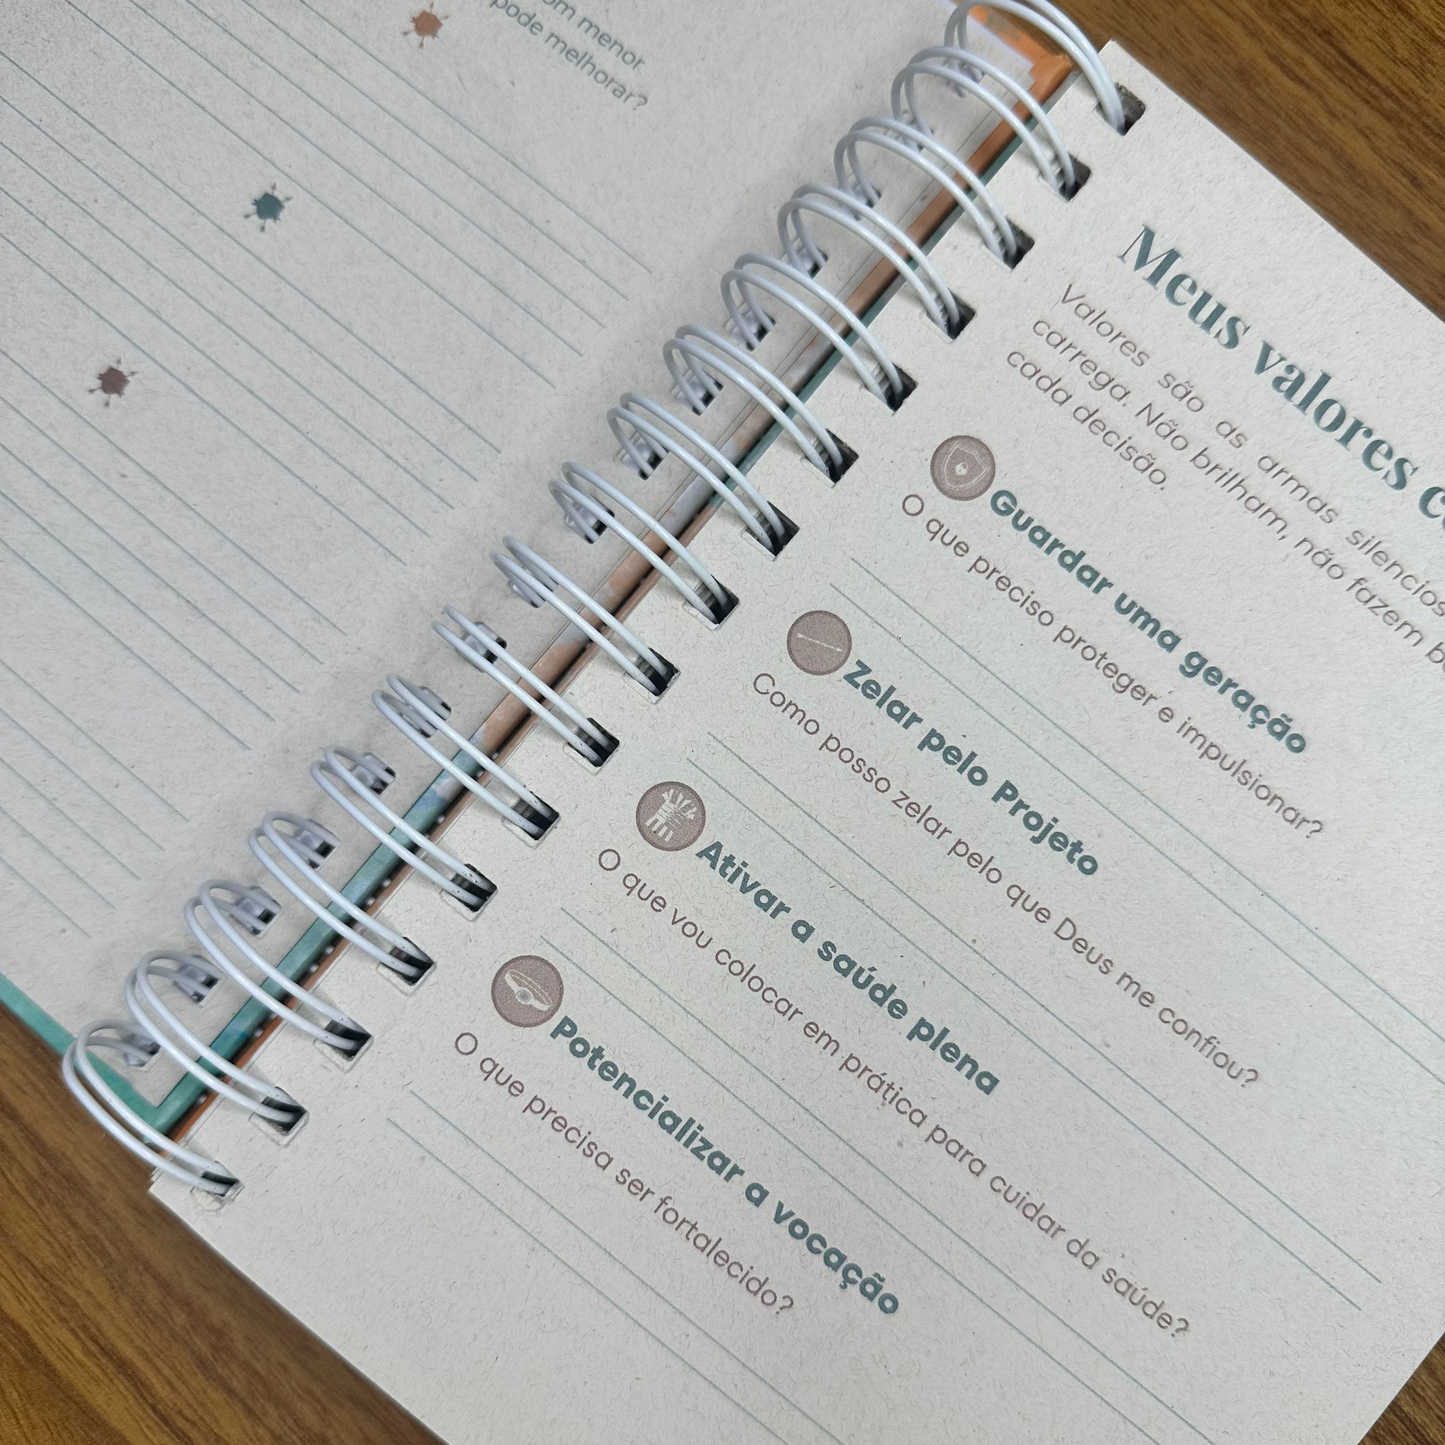 menor
pode melhorar?
Meus valores
Valores são as armas
carrega. Não brilham, não fazem
cada decisão.
Guardar uma geração
O que preciso proteger e impulsionar?
Zelar pelo Projeto
Como posso zelar pelo que Deus me confiou?
Ativar a saúde plena
O que vou colocar em prática para cuidar da saúde?
Potencializar a vocação
O que precisa ser fortalecido?